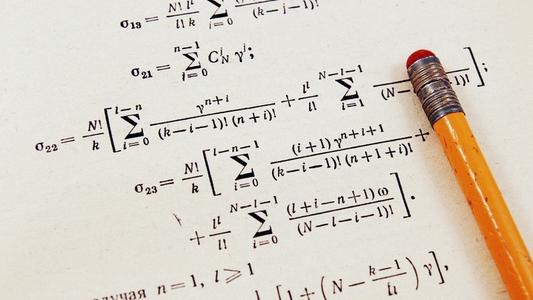 σ₁₃ = N! l^i / l! k ∑_{i=0} (k−i−1)!
σ₂₁ = ∑_{i=0}^{n−1} C_N^i γ^i;
σ₂₂ = N!/k [ ∑_{i=0}^{l−n} γ^{n+i} / (k−i−1)! (n+i)! + l^l/l! ∑_{i=1}^{N−l−1} / (N− −1)! ];
σ₂₃ = N!/k [ ∑_{i=0}^{l−n−1} (i+1) γ^{n+i+1} / (k−i−1)! (n+i+1)! +
+ l^l/l! ∑_{i=0}^{N−l−1} (l+i−n+1) ω / (N−l−i−1)! ].
n=1, l⩾1
[ 1 + ( N − (k−1)/l! ) γ ],